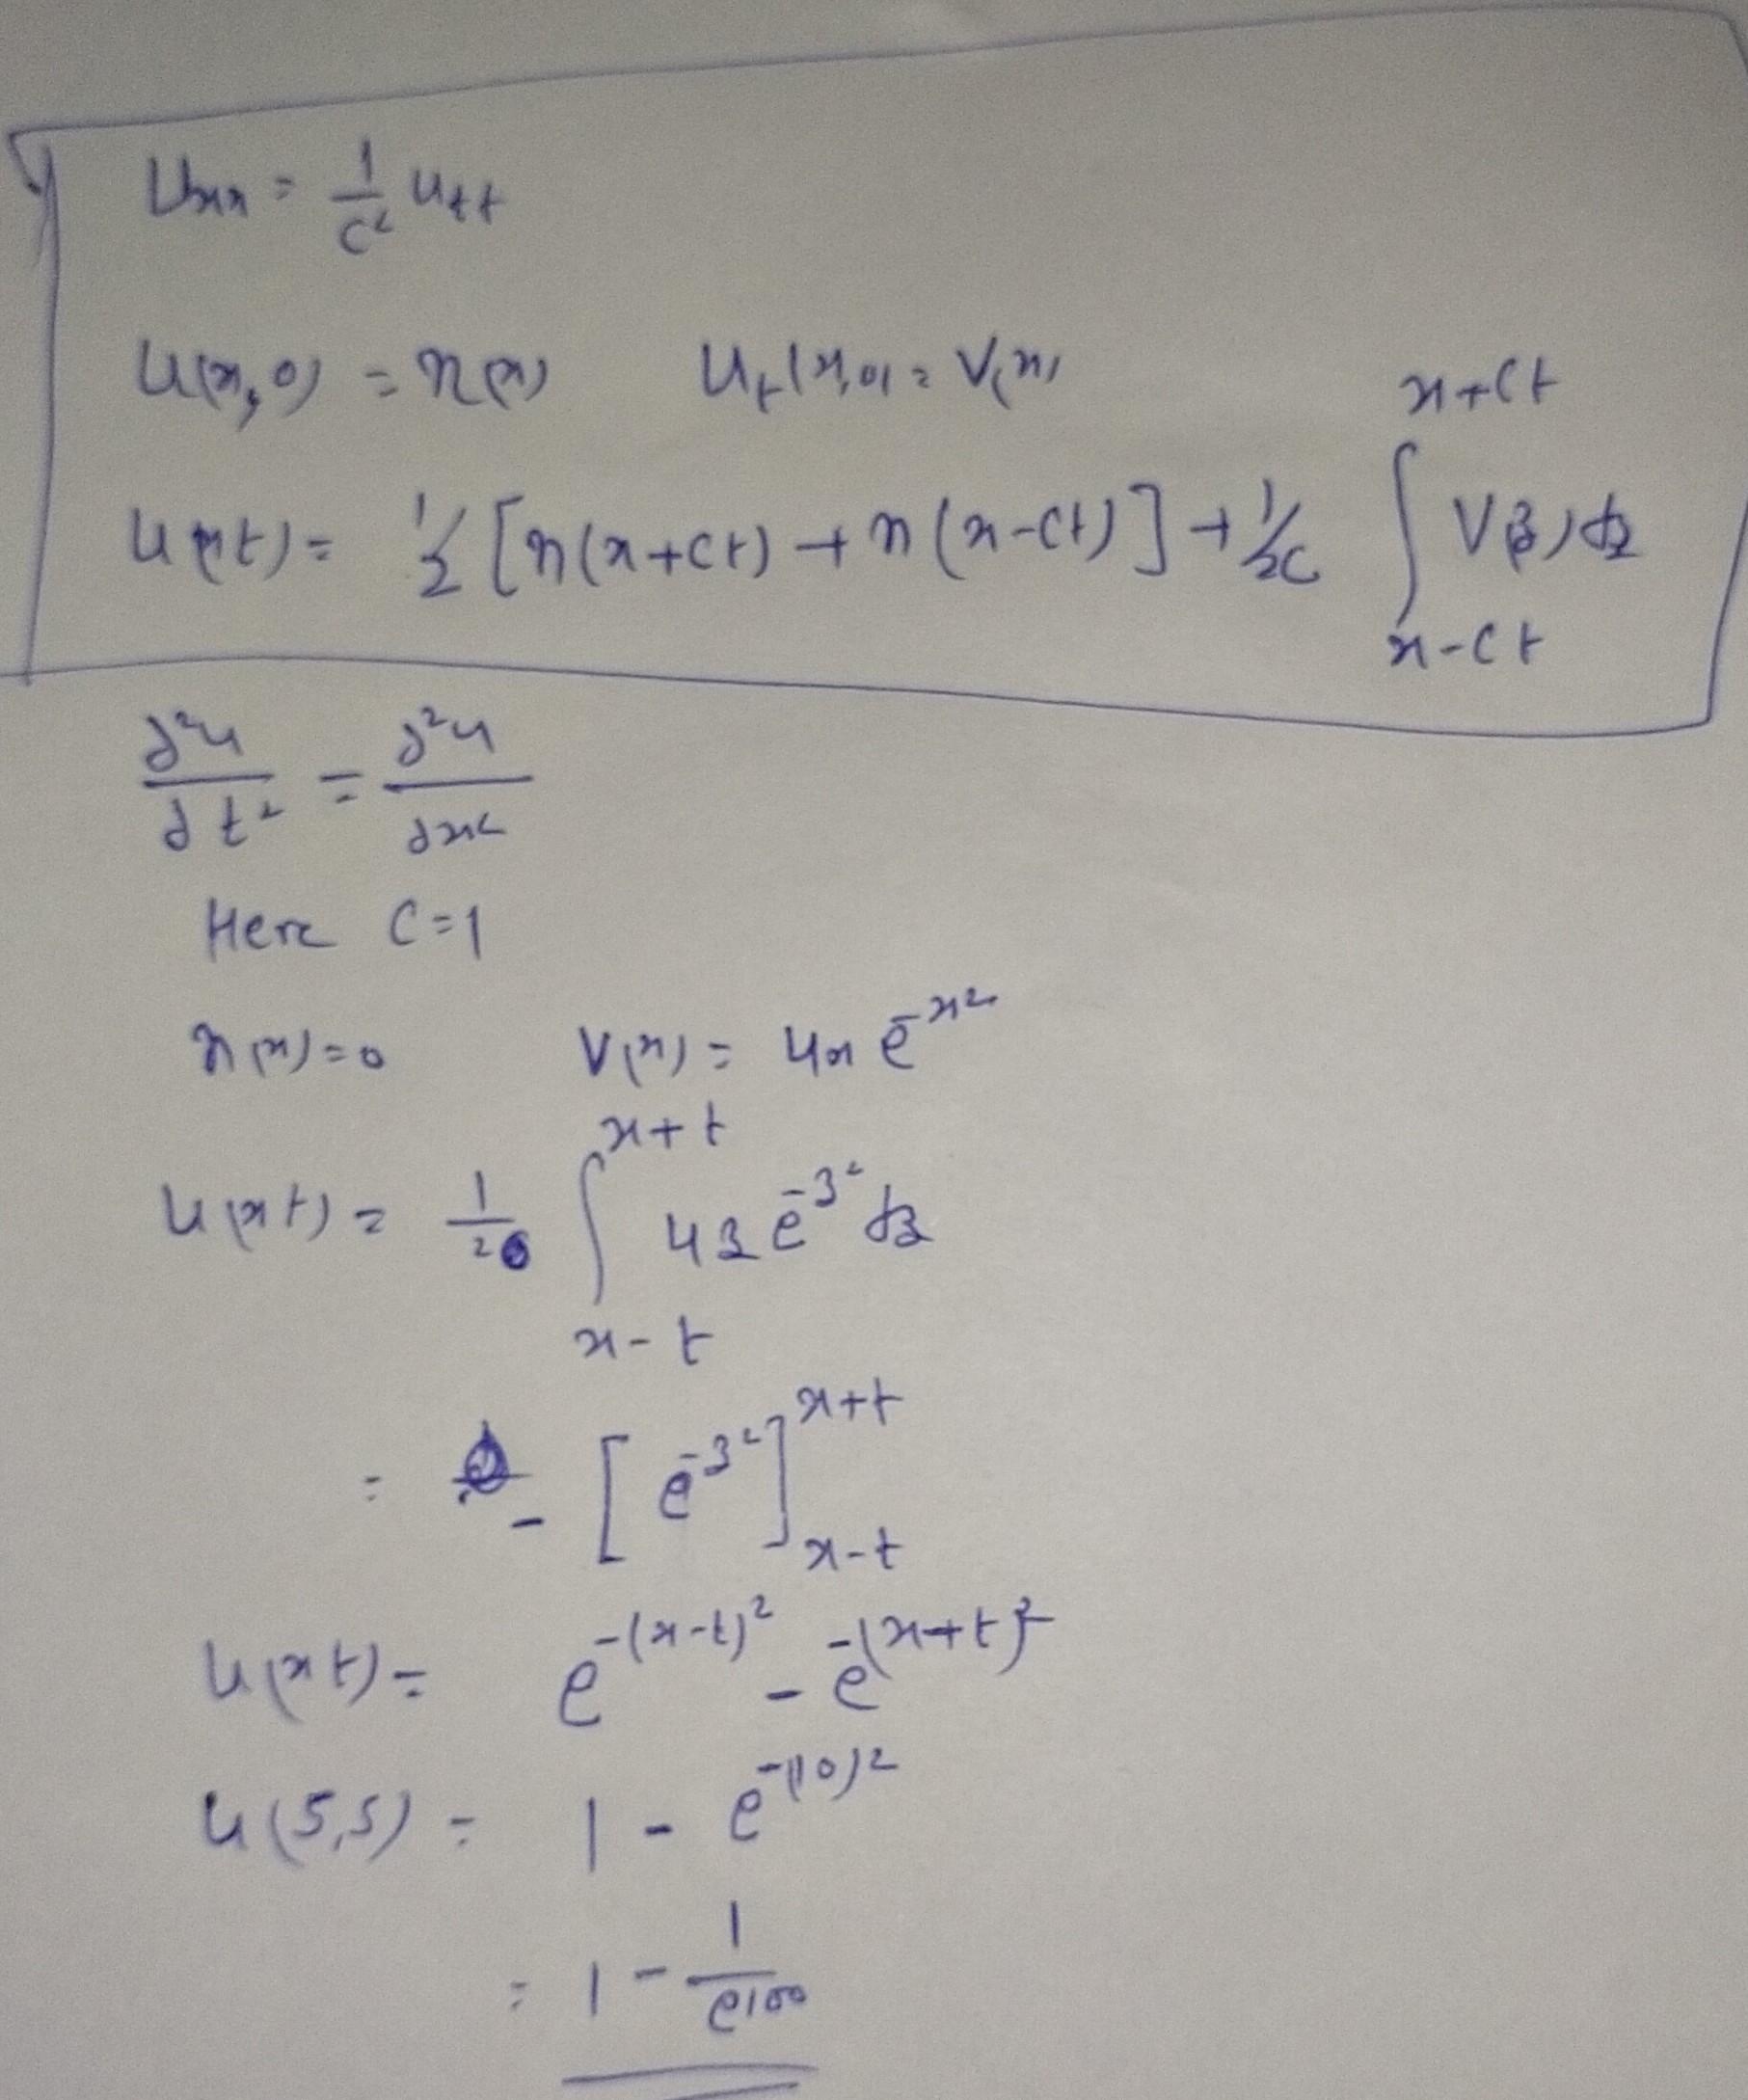 Uxx = 1/c² utt
u(x,0) = η(x) ut(x,0) = V(x)
u(x,t) = 1/2 [η(x+ct) + η(x-ct)] + 1/2c ∫_{x-ct}^{x+ct} V(z) dz
∂²u/∂t² = ∂²u/∂x²
Here C=1
η(x)=0 V(x) = 4x e^{-x²}
u(xt) = 1/2 ∫_{x-t}^{x+t} 4z e^{-z²} dz
= - [e^{-z²}]_{x-t}^{x+t}
u(xt) = e^{-(x-t)²} - e^{-(x+t)²}
u(5,5) = 1 - e^{-(10)²}
= 1 - 1/e^{100}